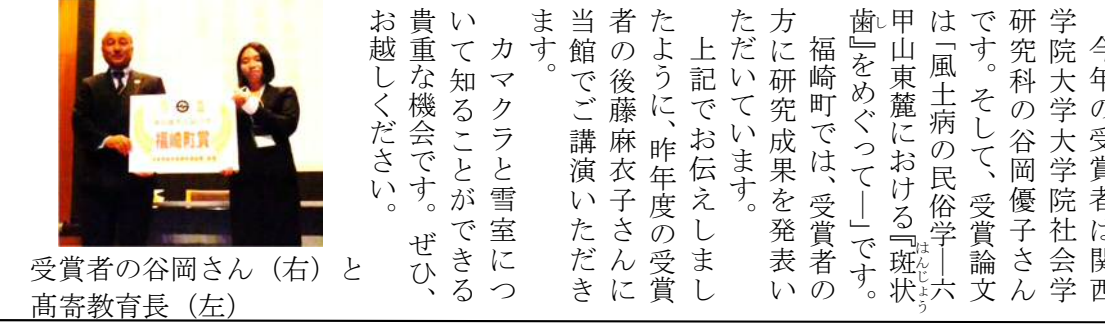 今年の受賞者は関西
学院大学大学院社会学
研究科の谷岡優子さん
です。そして、受賞論文
は「風土病の民俗学―六
甲山東麓における『斑状
はんじょう
歯』をめぐって―」です。
し
福崎町では、受賞者の
方に研究成果を発表い
ただいています。
上記でお伝えしまし
たように、昨年度の受賞
者の後藤麻衣子さんに
当館でご講演いただき
ます。
カマクラと雪室につ
いて知ることができる
貴重な機会です。ぜひ、
お越しください。
福崎町賞
受賞者の谷岡さん（右）と
髙寄教育長（左）